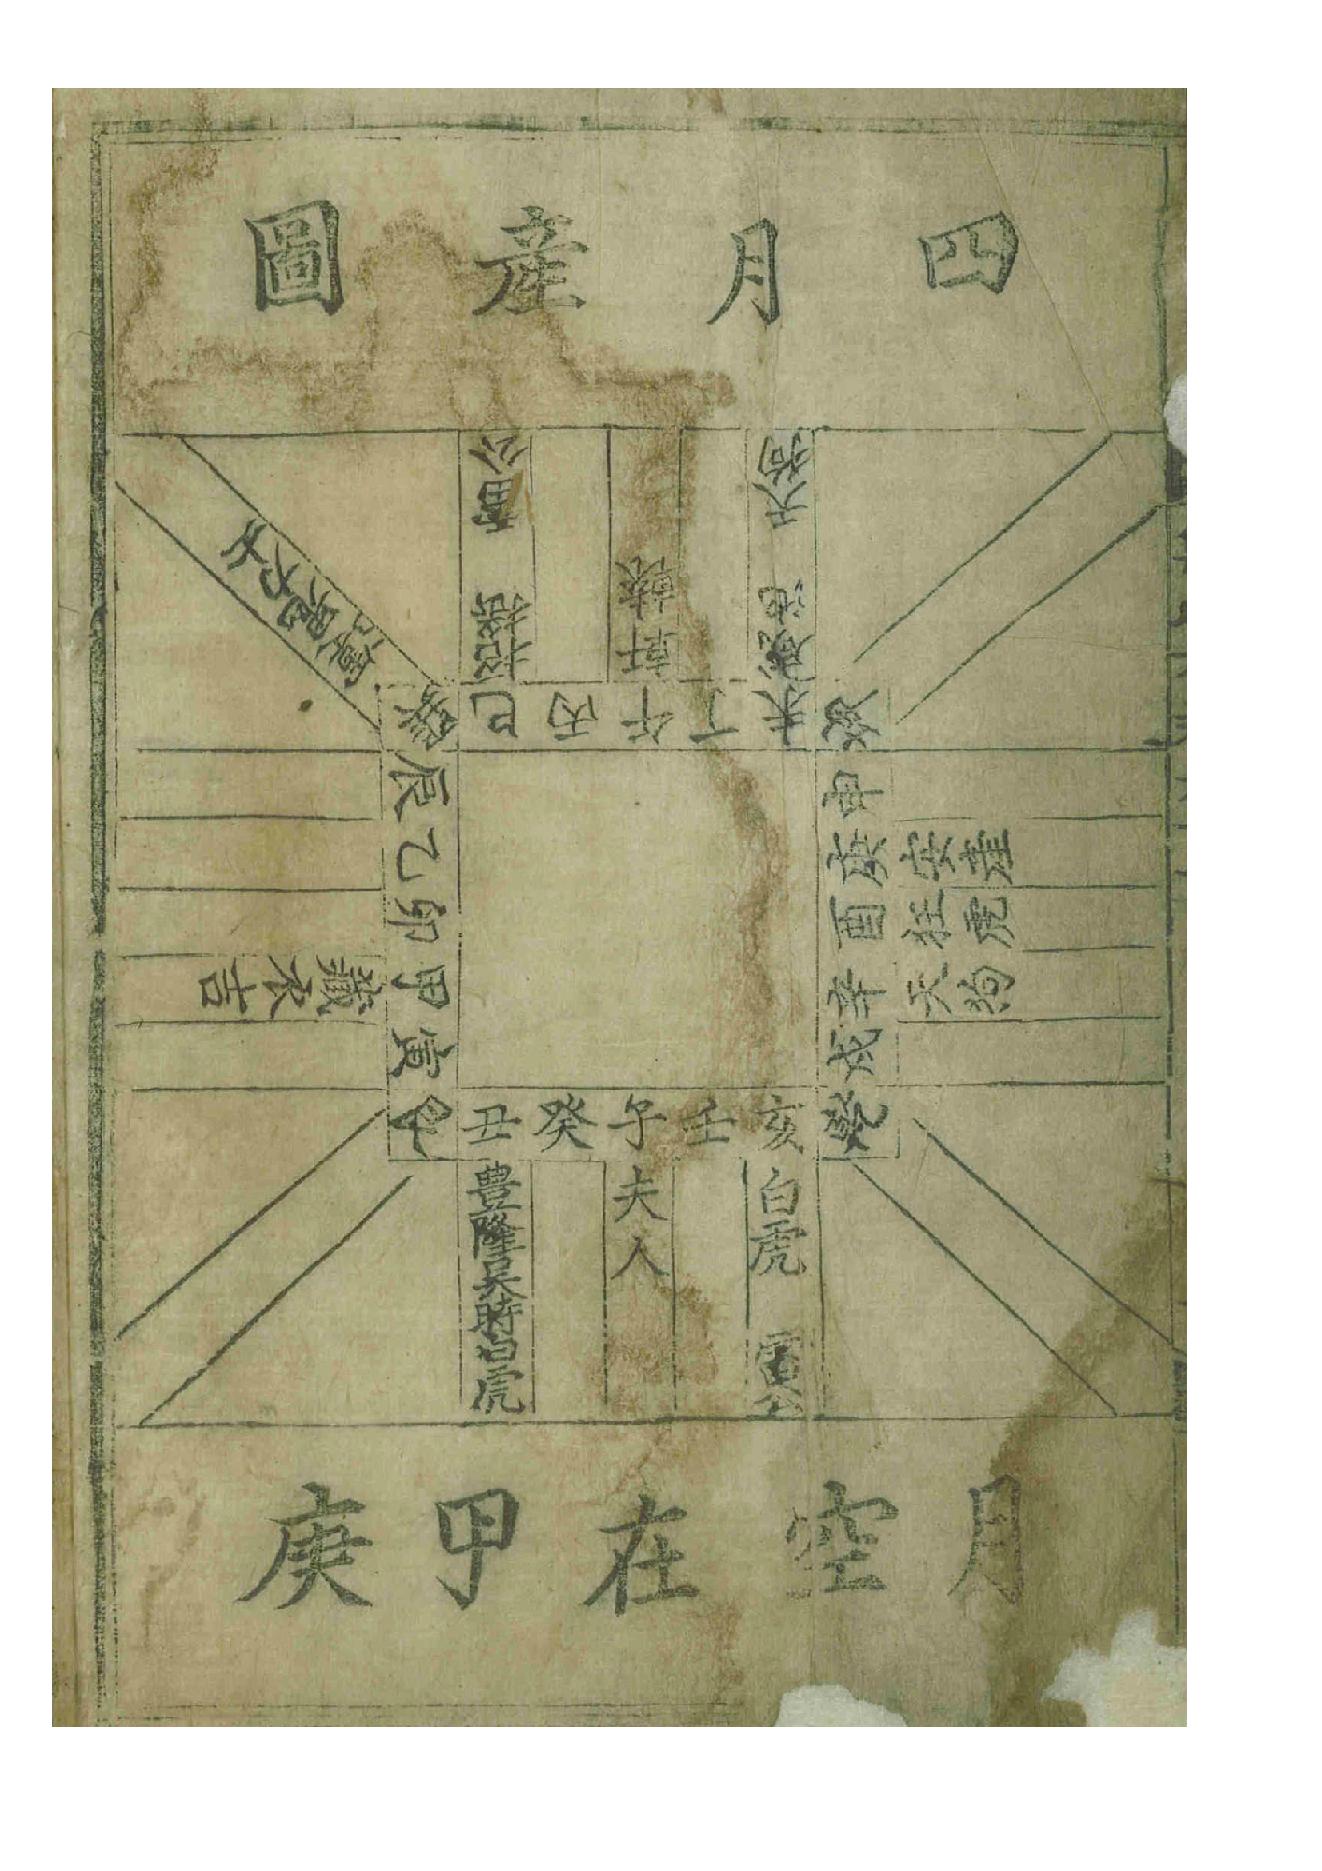 四月産圖
運鬼力士
招搖 雷公
軒轅
咸池 天狗
巽巳丙午丁未坤
申庚酉辛戌乾
安產
狂虎
天狗
亥壬子癸丑艮
寅甲卯乙辰
藏衣吉
白虎 雷公
夫人
豊隆吴時白虎
月空在甲庚